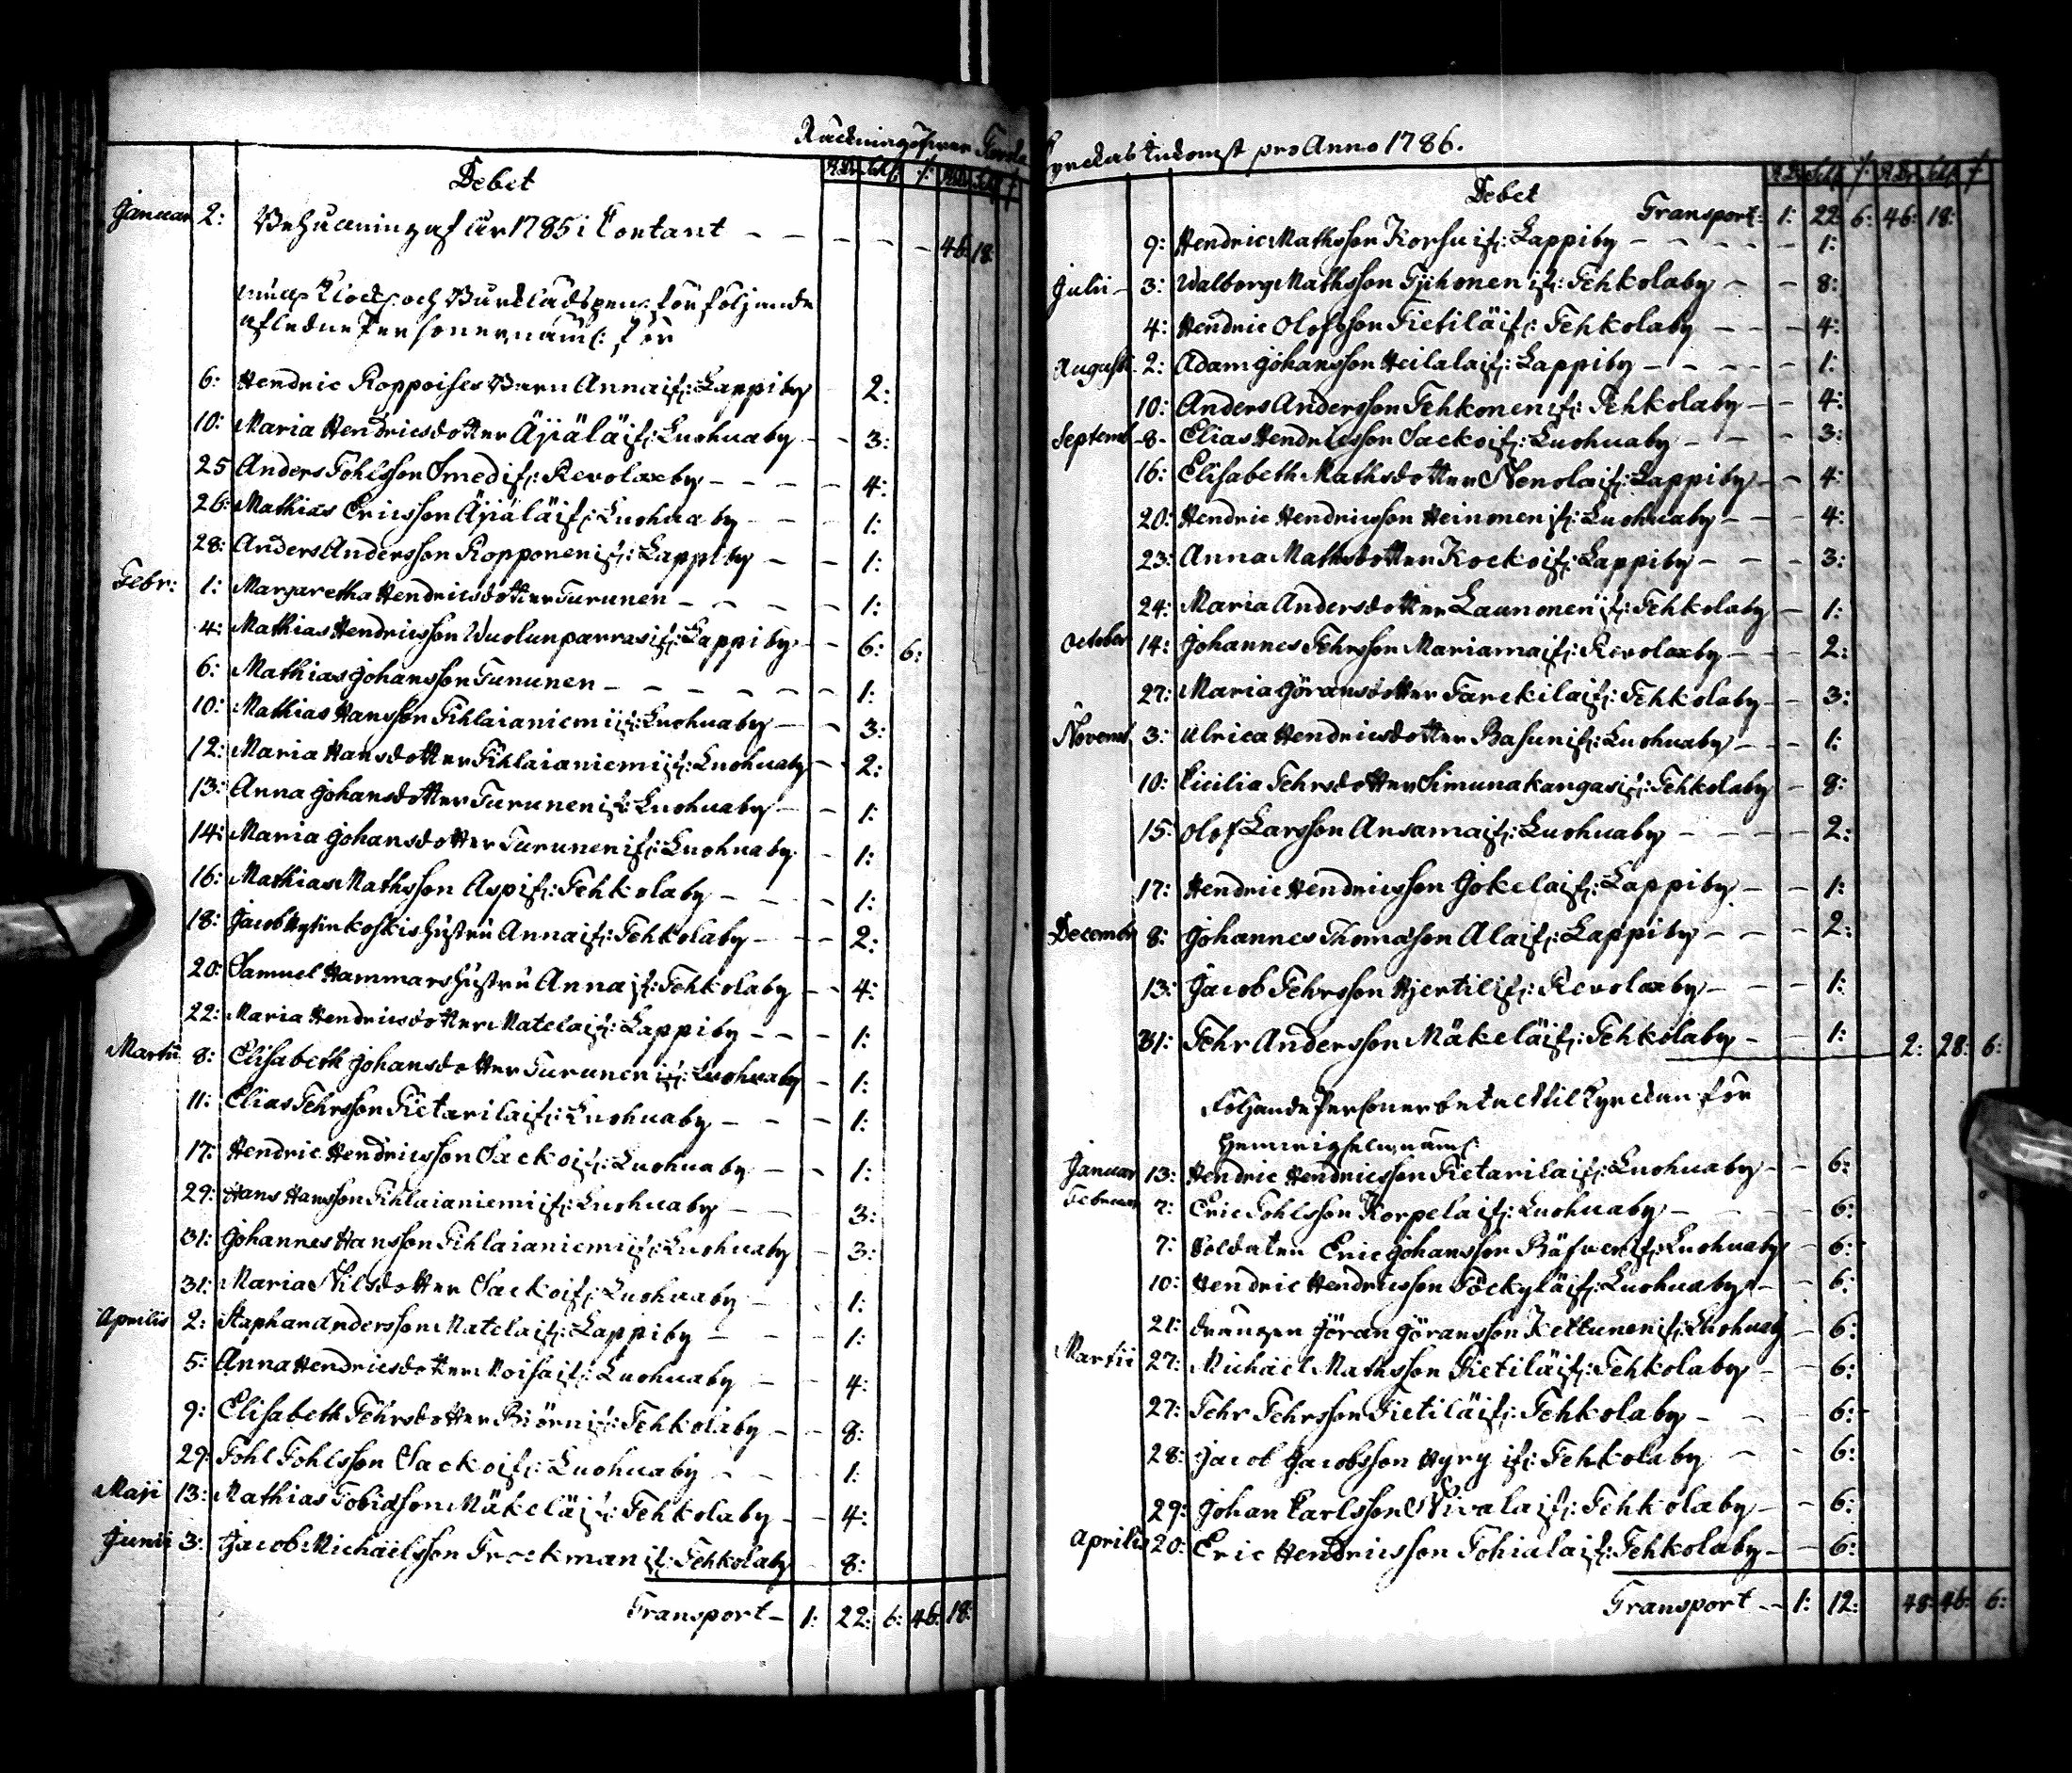 Räckning öfver
Debet
RDr Sch r: RDr Sch r
Januar 2: Behållning af år 1785 i Contant – – – – – 46: 18:
och för följande
aflednе Personer, näml: för
6: Hendric Koppoises Barn Anna if: Lappiby – 2:
10: Maria Hendricsdotter Äjiälä if: Luohuaby – – 3:
25 Anders Pohlsson Smed if: Revolaxby – – – – 4:
26: Mathias Ericsson Äjiälä if: Luohuaby – – – 1:
28: Anders Andersson Kopponen if: Lappiby – – 1:
Febr: 1: Margaretha Hendricsdotter Turunen – – – – – 1:
4: Mathias Hendricsson Wuolunparras if: Lappiby – – 6: 6:
6: Mathias Johansson Turunen – – – – – – 1:
10: Mathias Hansson Pihlaianiemi if: Luohuaby – – 3:
12: Maria Hansdotter Pihlaianiemi if: Luohuaby – – 2:
13: Anna Johansdotter Turunen if: Luohuaby – – 1:
14: Maria Johansdotter Turunen if: Luohuaby – 1:
16: Mathias Mathsson Aspi if: Pehkolaby – – – – 1:
18: Jacob hustru Anna if: Pehkolaby – – – 2:
20: Samuel Hammars hustru Anna if: Pehkolaby – – 4:
22: Maria Hendricsdotter Matela if: Lappiby – – – 1:
Martii 8: Elisabeth Johansdotter Turunen if: Luohuaby – 1:
11: Elias Pehrsson Pietarila if: Luohuaby – – – 1:
17: Hendric Hendricsson Sacko if: Luohuaby – – 1:
29: Hans Hansson Pihlaianiemi if: Luohuaby – – – 3:
31: Johannes Hansson Pihlaianiemi if: Luohuaby – 3:
31: Maria Nilsdotter Sacko if: Luohuaby – – 1:
Aprilis 2: Staphan Andersson Matela if: Lappiby – – – 1:
5: Anna Hendricsdotter Moisa if: Luohuaby – – 4:
9: Elisabeth Pehrsdotter Biörni if: Pehkolaby – – 8:
29: Pohl Pohlsson Sacko if: Luohuaby – – – 1:
Maji 13: Mathias Tobiasson Mäkelä if: Pehkolaby – – 4:
Junii 3: Jacob Michaelsson Frockman if: Pehkolaby – 8:
Transport – 1: 22: 6: 46: 18:
Kyrckas Inkomst pro Anno 1786.
RDr Sch r: RDr Sch r
Debet
Transport: 1: 22: 6: 46: 18:
9: Hendric Mathsson Korhu if: Lappiby – – – – – 1:
Julii – 3: Walborg Mathsson Tyihonen if: Pehkolaby – – 8:
4: Hendric Olofsson Pietilä if: Pehkolaby – – – 4:
August: 2: Adam Johansson Heilala if: Lappiby – – – – – 1:
10: Anders Andersson Pehkonen if: Pehkolaby – – 4:
Septemb – 8 – Elias Hendricsson Sacko if: Luohuaby – – – 3:
16: Elisabeth Mathsdotter Nenola if: Lappiby – – 4:
20: Hendric Hendricsson Heinonen if: Luohuaby – – – 4:
23: Anna Mathsdotter Kocko if: Lappiby – – – – 3:
24: Maria Andersdotter Launonen if: Pehkolaby – 1:
October 14: Johannes Pehrsson Mariama if: Revolaxby – – – 2:
27: Maria Göransdotter Tarckila if: Pehkolaby – – 3:
Novemb 3: Ulrica Hendricsdotter Basun if: Luohuaby – – – 1:
10: Cicilia Pehrsdotter Simunakangas if: Pehkolaby – 8:
15: Olof Larsson Ansama if: Luohuaby – – – – 2:
17: Hendric Hendricsson Jokela if: Lappiby – – 1:
Decembr 8: Johannes Thomasson Ala if: Lappiby – – – 2:
13: Jacob Pehrsson Hjertil if: Revolaxby – – – 1:
31: Pehr Andersson Mäkelä if: Pehkolaby – – 1: 2: 28: 6:
Följande Personer betalt til Kyrckan för
näml:
Januar 13: Hendric Hendricsson Pietarila if: Luohuaby – – 6:
Februar 7: Eric Pohlsson Korpela if: Luohuaby – – – – 6:
7: Soldaten Eric Johansson if: Luohuaby – 6:
10: Hendric Hendricsson Töckylä if: Luohuaby – – 6:
21: drängen Jöran Jöransson Keltunen if: Luohuaby – 6:
Martii 27: Michael Mathsson Pietilä if: Pehkolaby – – 6:
27: Pehr Pehrsson Pietilä if: Pehkolaby – – – 6:
28: Jacob Jacobsson Hyry if: Pehkolaby – – 6:
29: Johan Carlsson Nivala if: Pehkolaby – – 6:
Aprilis 20: Eric Hendricsson Tohiala if: Pehkolaby – – 6:
Transport – – 1: 12: 48: 46: 6: